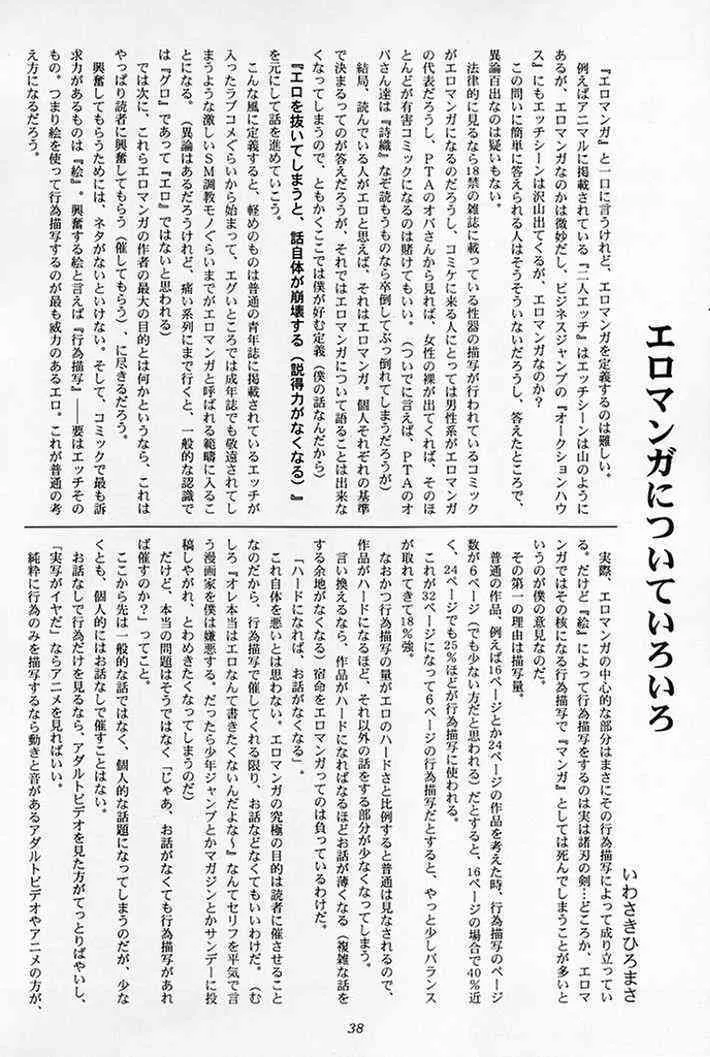 エロマンガについていろいろ
いわさきひろまさ
『エロマンガ』と一口に言うけれど、エロマンガを定義するのは難しい。
例えばアニマルに掲載されている『二人エッチ』はエッチシーンは山のように
あるが、エロマンガなのかは微妙だし、ビジネスジャンプの『オークションハウ
ス』にもエッチシーンは沢山出てくるが、エロマンガなのか?
この問いに簡単に答えられる人はそうそういないだろうし、答えたところで、
異論百出なのは疑いもない。
法律的に見るなら18禁の雑誌に載っている性器の描写が行われているコミック
がエロマンガになるのだろうし、コミケに来る人にとっては男性系がエロマンガ
の代表だろうし、PTAのオバさんから見れば、女性の裸が出てくれば、そのほ
とんどが有害コミックになるのは賭けてもいい。(ついでに言えば、PTAのオ
バさん達は『詩織』なぞ読もうものなら卒倒してぶっ倒れてしまうだろうが)
結局、読んでいる人がエロと思えば、それはエロマンガ。個人それぞれの基準
で決まるってのが答えだろうが、それではエロマンガについて語ることは出来な
くなってしまうので、ともかくここでは僕が好む定義(僕の話なんだから)
『エロを抜いてしまうと、話自体が崩壊する(説得力がなくなる)』
を元にして話を進めていこう。
こんな風に定義すると、軽めのものは普通の青年誌に掲載されているエッチが
入ったラブコメぐらいから始まって、エグいところでは成年誌でも敬遠されてし
まうような激しいSM調教モノぐらいまでがエロマンガと呼ばれる範疇に入るこ
とになる。(異論はあるだろうけれど、痛い系列にまで行くと、一般的な認識で
は『グロ』であって『エロ』ではないと思われる)
では次に、これらエロマンガの作者の最大の目的とは何かというなら、これは
やっぱり読者に興奮してもらう(催してもらう)、に尽きるだろう。
興奮してもらうためには、ネタがないといけない。そして、コミックで最も訴
求力があるものは『絵』。興奮する絵と言えば『行為描写』――要はエッチその
もの。つまり絵を使って行為描写するのが最も威力のあるエロ。これが普通の考
え方になるだろう。
実際、エロマンガの中心的な部分はまさにその行為描写によって成り立ってい
る。だけど『絵』によって行為描写をするのは実は諸刃の剣…どころか、エロマ
ンガではその核になる行為描写で『マンガ』としては死んでしまうことが多いと
いうのが僕の意見なのだ。
その第一の理由は描写量。
普通の作品、例えば16ページとか24ページの作品を考えた時、行為描写のページ
数が6ページ(でも少ない方だと思われる)だとすると、16ページの場合で40%近
く、24ページでも25%ほどが行為描写に使われる。
これが32ページになって6ページの行為描写だとすると、やっと少しバランス
が取れてきて18%強。
なおかつ行為描写の量がエロのハードさと比例すると普通は見なされるので、
作品がハードになるほど、それ以外の話をする部分が少なくなってしまう。
言い換えるなら、作品がハードになればなるほどお話が薄くなる(複雑な話を
する余地がなくなる)宿命をエロマンガってのは負っているわけだ。
「ハードになれば、お話がなくなる」。
これ自体を悪いとは思わない。エロマンガの究極の目的は読者に催させること
なのだから、行為描写で催してくれる限り、お話などなくてもいいわけだ。(む
しろ『オレ本当はエロなんて書きたくないんだよな~』なんてセリフを平気で言
う漫画家を僕は嫌悪する。だったら少年ジャンプとかマガジンとかサンデーに投
稿しやがれ、とわめきたくなってしまうのだ)
だけど、本当の問題はそうではなく「じゃあ、お話がなくても行為描写があれ
ば催すのか?」ってこと。
ここから先は一般的な話ではなく、個人的な話題になってしまうのだが、少な
くとも、個人的にはお話なしで催すことはない。
お話なしで行為だけを見るなら、アダルトビデオを見た方がてっとりばやいし、
「実写がイヤだ」ならアニメを見ればいい。
純粋に行為のみを描写するなら動きと音があるアダルトビデオやアニメの方が、
38